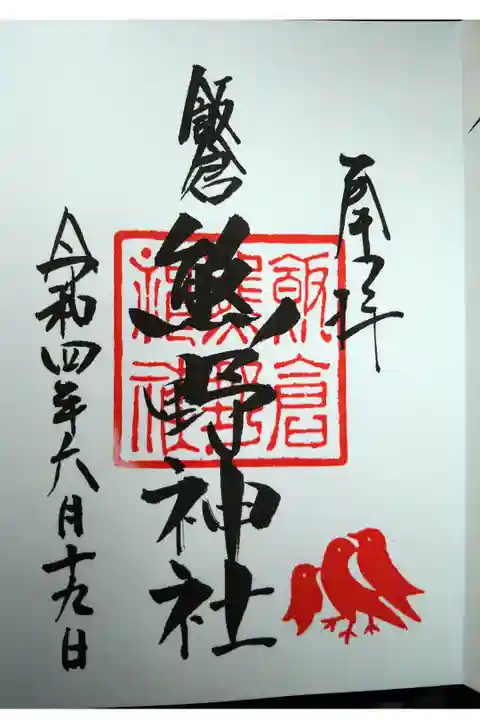 奉拝
飯倉
熊野神社
飯倉
熊野
神社
令和四年六月十九日